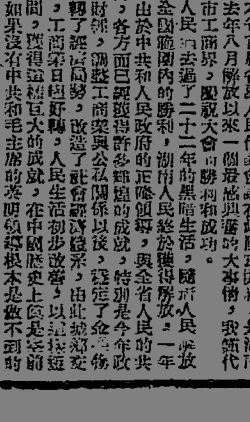 去年八月解放以來一個最感興奮的大事情，我謹代
市工商界，慶祝大會的勝利和成功。
人民 過去過了二十二年的黑暗生活，隨 人民解放
全國範圍內的勝利，湖南人民終於獲得解放。一年
由於中共和人民政府的正確領導，與全省人民的共
，各方面已經獲得許多輝煌的成就，特別是今年政
財經，調整工商業與公私關係以後，穩定了金 物
轉了經濟局勢，改造了社會經濟 系，由此城鄉交
，工商業日趨好轉，人民生活初步改善，以 短
間，獲得這樣巨大的成就，在中國歷史上 是空前
如果沒有中共和毛主席的英明領導根本是做不到的